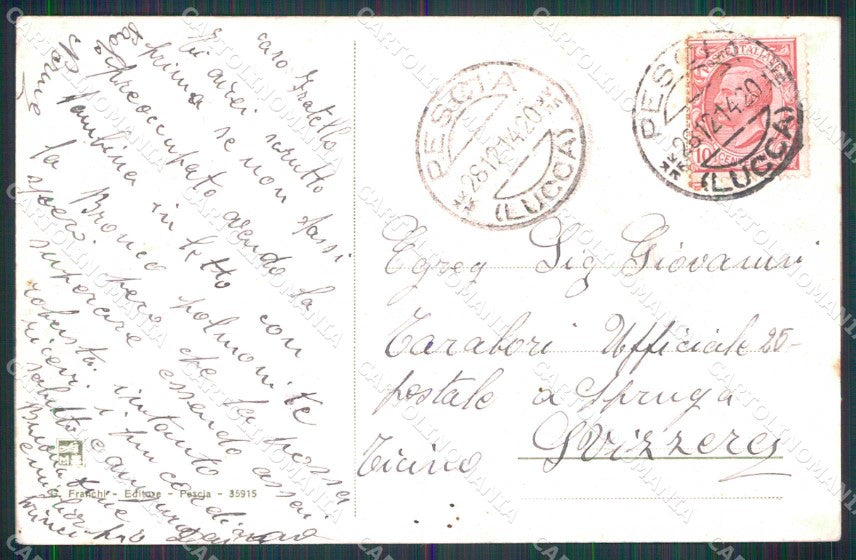 caro Fratello
Vi avrei scritto
prima se non fossi
preoccupato avendo la
bambina in letto con
la Bronco polmonite
spero pero che la possa
superare essendo assai
robusta, intanto
ricevi i piu cordiali
saluti e auguri
Buona fine
e miglior
PESCIA
28.12.14.20
(LUCCA)
PESCIA
28.12.14.20
(LUCCA)
10
Egreg Sig Giovanni
Tarabori Ufficiale
postale a Spruga
Ticino Svizzera
G. Franchi - Editore - Pescia - 35915
CARTOLINOMANIA